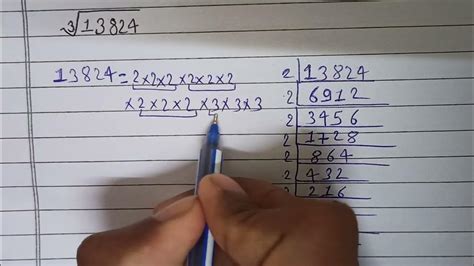 ∛13824
13824 = 2×2×2×2×2×2
×2×2×2×3×3×3
2 | 13824
2 | 6912
2 | 3456
2 | 1728
2 | 864
2 | 432
2 | 216